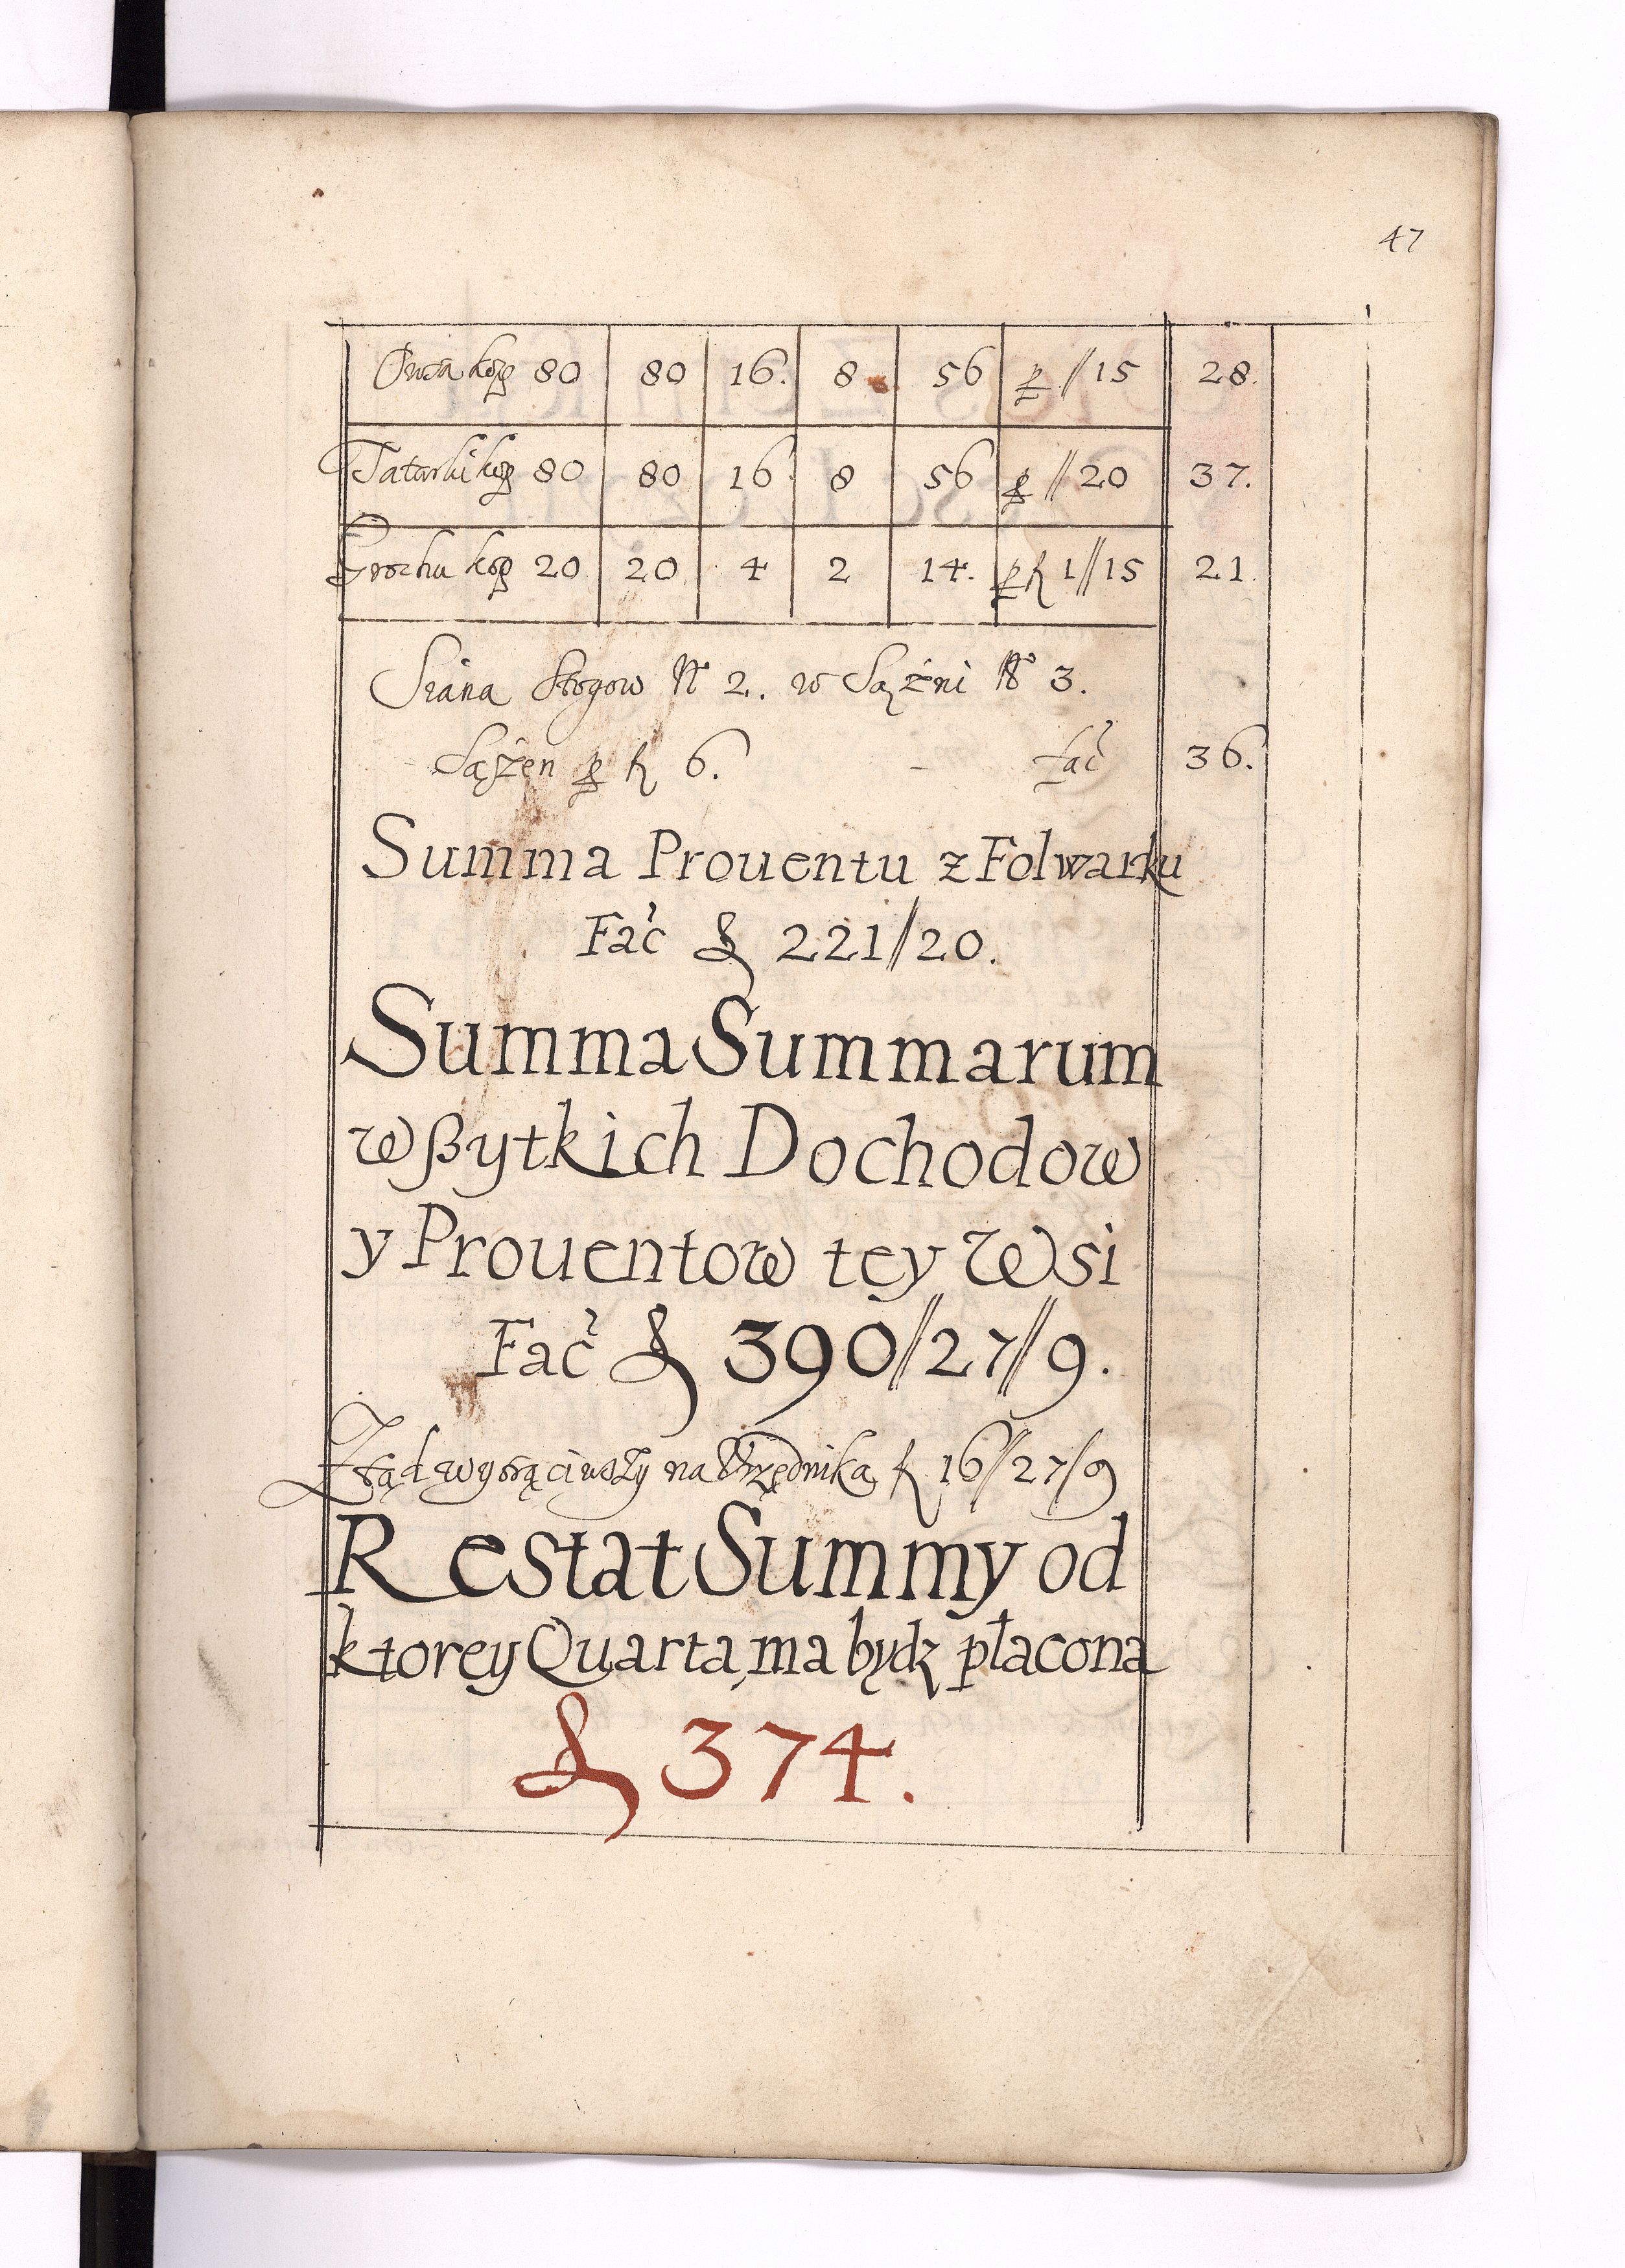 47
Owsa kop 80 80 16. 8 56 p //15 28.
Tatarki kop 80 80 16 8 56 p //20 37.
Grochu kop 20 20 4 2 14. p f 1//15 21.
Siana Stogow No 2. w Sążni No 3.
Sążen p f 6. - fac 36.
Summa Prouentu z Folwarku
Fac f 221//20.
Summa Summarum
wßytkich Dochodow
y Prouentow tey Wsi
Fac f 390//27//9.
Ztąd wytrąciwszy na Vrzędnika f 16//27//9
Restat Summy od
ktorey Quarta ma bydz płacona
f 374.